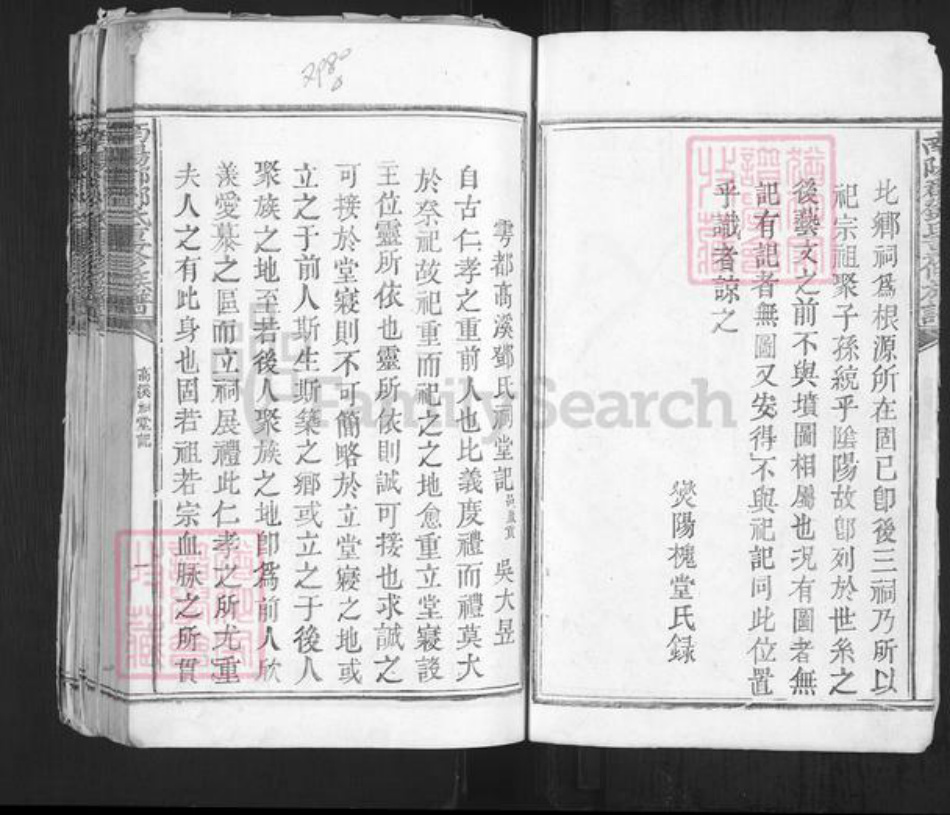 此鄉祠爲根源所在固已卽後三祠乃所以
祀宗祖聚子孫統乎陰陽故卽列於世系之
後藝文之前不與墳圖相屬也况有圖者無
記有記者無圖又安得不與祀記同此位置
乎識者諒之
滎陽槐堂氏録
雩都高溪鄧氏祠堂記 吳大昱
自古仁孝之重前人也比義度禮而禮莫大
於祭祀故祀重而祀之之地愈重立堂寢設
主位靈所依也靈所依則誠可接也求誠之
可接於堂寢則不可簡略於立堂寢之地或
立之于前人斯生斯築之鄉或立之于後人
聚族之地至若後人聚族之地卽爲前人欣
羨愛慕之區而立祠展禮此仁孝之所尤重
夫人之有此身也固若祖若宗血脉之所貫
高溪祠堂記
一
2980
FamilySearch